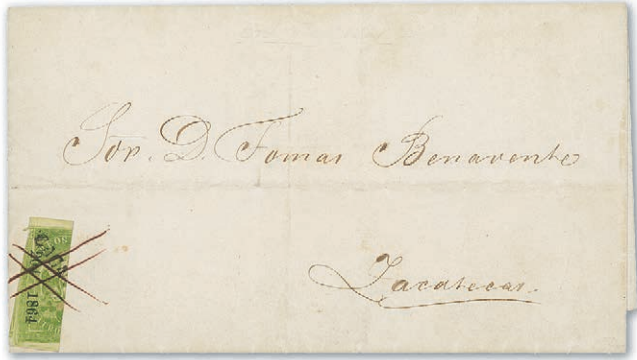 Sor. D. Tomas Benavente
Zacatecas.
1864